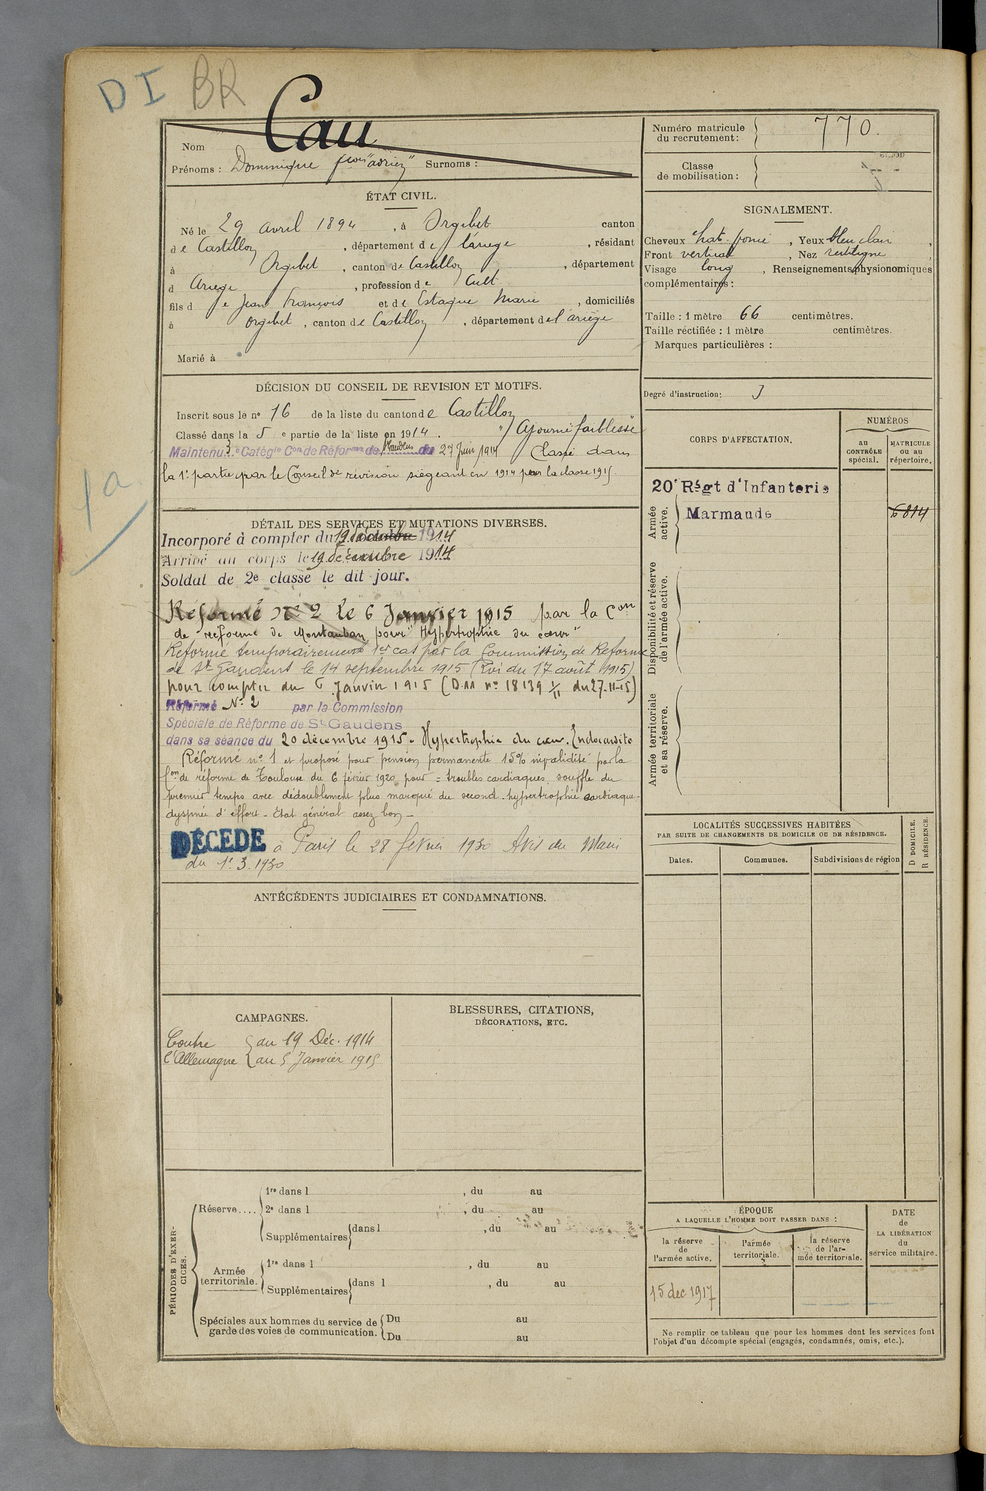 DI BR
Cau
Nom
Prénoms : Dominique "adrien" Surnoms :
ÉTAT CIVIL.
Né le 29 avril 1894, à Orgibet canton
de Castillon, département de l'ariège, résidant
à Orgibet, canton de Castillon, département
d Ariège, profession de Cult
fils de Jean François et de Estaque Marie, domiciliés
à Orgibet, canton de Castillon, département de l'ariège
Marié à
DÉCISION DU CONSEIL DE REVISION ET MOTIFS.
Inscrit sous le n° 16 de la liste du canton de Castillon
Classé dans la 5e partie de la liste en 1914. Ajourné faiblesse
Maintenu 3e Catégie Con de Réforme de du 27 Juin 1914 Classé dans
la 1e partie par le Conseil de revision siégeant en 1914 pour la classe 1915
1a
DÉTAIL DES SERVICES ET MUTATIONS DIVERSES.
Incorporé à compter du 19 décembre 1914
Arrivé au corps le 19 décembre 1914
Soldat de 2e classe le dit jour.
Réformé N° 2 le 6 Janvier 1915 par la Con
de réforme de Montauban pour "Hypertrophie du cœur"
Réformé temporairement 1er cas par la Commission de Réforme
de St Gaudens le 14 septembre 1915 (Loi du 17 août 1915)
pour compter du 6 Janvier 1915 (D.M n° 18139 1/11 du 27-11-15)
Réformé N° 2 par la Commission
Spéciale de Réforme de St Gaudens
dans sa séance du 20 décembre 1915 - Hypertrophie du cœur. Endocardite
Réformé n° 1 et proposé pour pension permanente 15% invalidité par la
Con de réforme de Toulouse du 6 février 1920 pour = troubles cardiaques, souffle du
premier temps avec dédoublement plus marqué du second - hypertrophie cardiaque -
dyspnée d'effort - État général assez bon -
DÉCÉDÉ à Paris le 28 février 1930 Avis du Maire
du 1.3.1930
ANTÉCÉDENTS JUDICIAIRES ET CONDAMNATIONS.
CAMPAGNES.
Contre l'Allemagne
du 19 Déc. 1914
au 5 Janvier 1915
BLESSURES, CITATIONS,
DÉCORATIONS, ETC.
PÉRIODES D'EXERCICES.
Réserve....
1re dans l , du au
2e dans l , du au
Supplémentaires dans l , du au
Armée territoriale.
1re dans l , du au
Supplémentaires dans l , du au
Spéciales aux hommes du service de garde des voies de communication.
Du au
Du au
Numéro matricule du recrutement : 770.
Classe de mobilisation :
SIGNALEMENT.
Cheveux chat. foncé, Yeux bleu clair,
Front vertical, Nez rectiligne,
Visage long, Renseignements physionomiques
complémentaires :
Taille : 1 mètre 66 centimètres.
Taille réctifiée : 1 mètre centimètres.
Marques particulières :
Degré d'instruction: 3
CORPS D'AFFECTATION.
NUMÉROS
AU CONTRÔLE spécial.
MATRICULE OU AU répertoire.
Armée active.
20e Régt d'Infanterie
Marmande
6814
Disponibilité et réserve de l'armée active.
Armée territoriale et sa réserve.
LOCALITÉS SUCCESSIVES HABITÉES
PAR SUITE DE CHANGEMENTS DE DOMICILE OU DE RÉSIDENCE.
Dates. Communes. Subdivisions de région
D DOMICILE.
R RÉSIDENCE.
ÉPOQUE
A LAQUELLE L'HOMME DOIT PASSER DANS :
la réserve de l'armée active.
l'armée territoriale.
la réserve de l'armée territoriale.
DATE de LA LIBÉRATION du service militaire.
15 dec 1917
Ne remplir ce tableau que pour les hommes dont les services font
l'objet d'un décompte spécial (engagés, condamnés, omis, etc.).